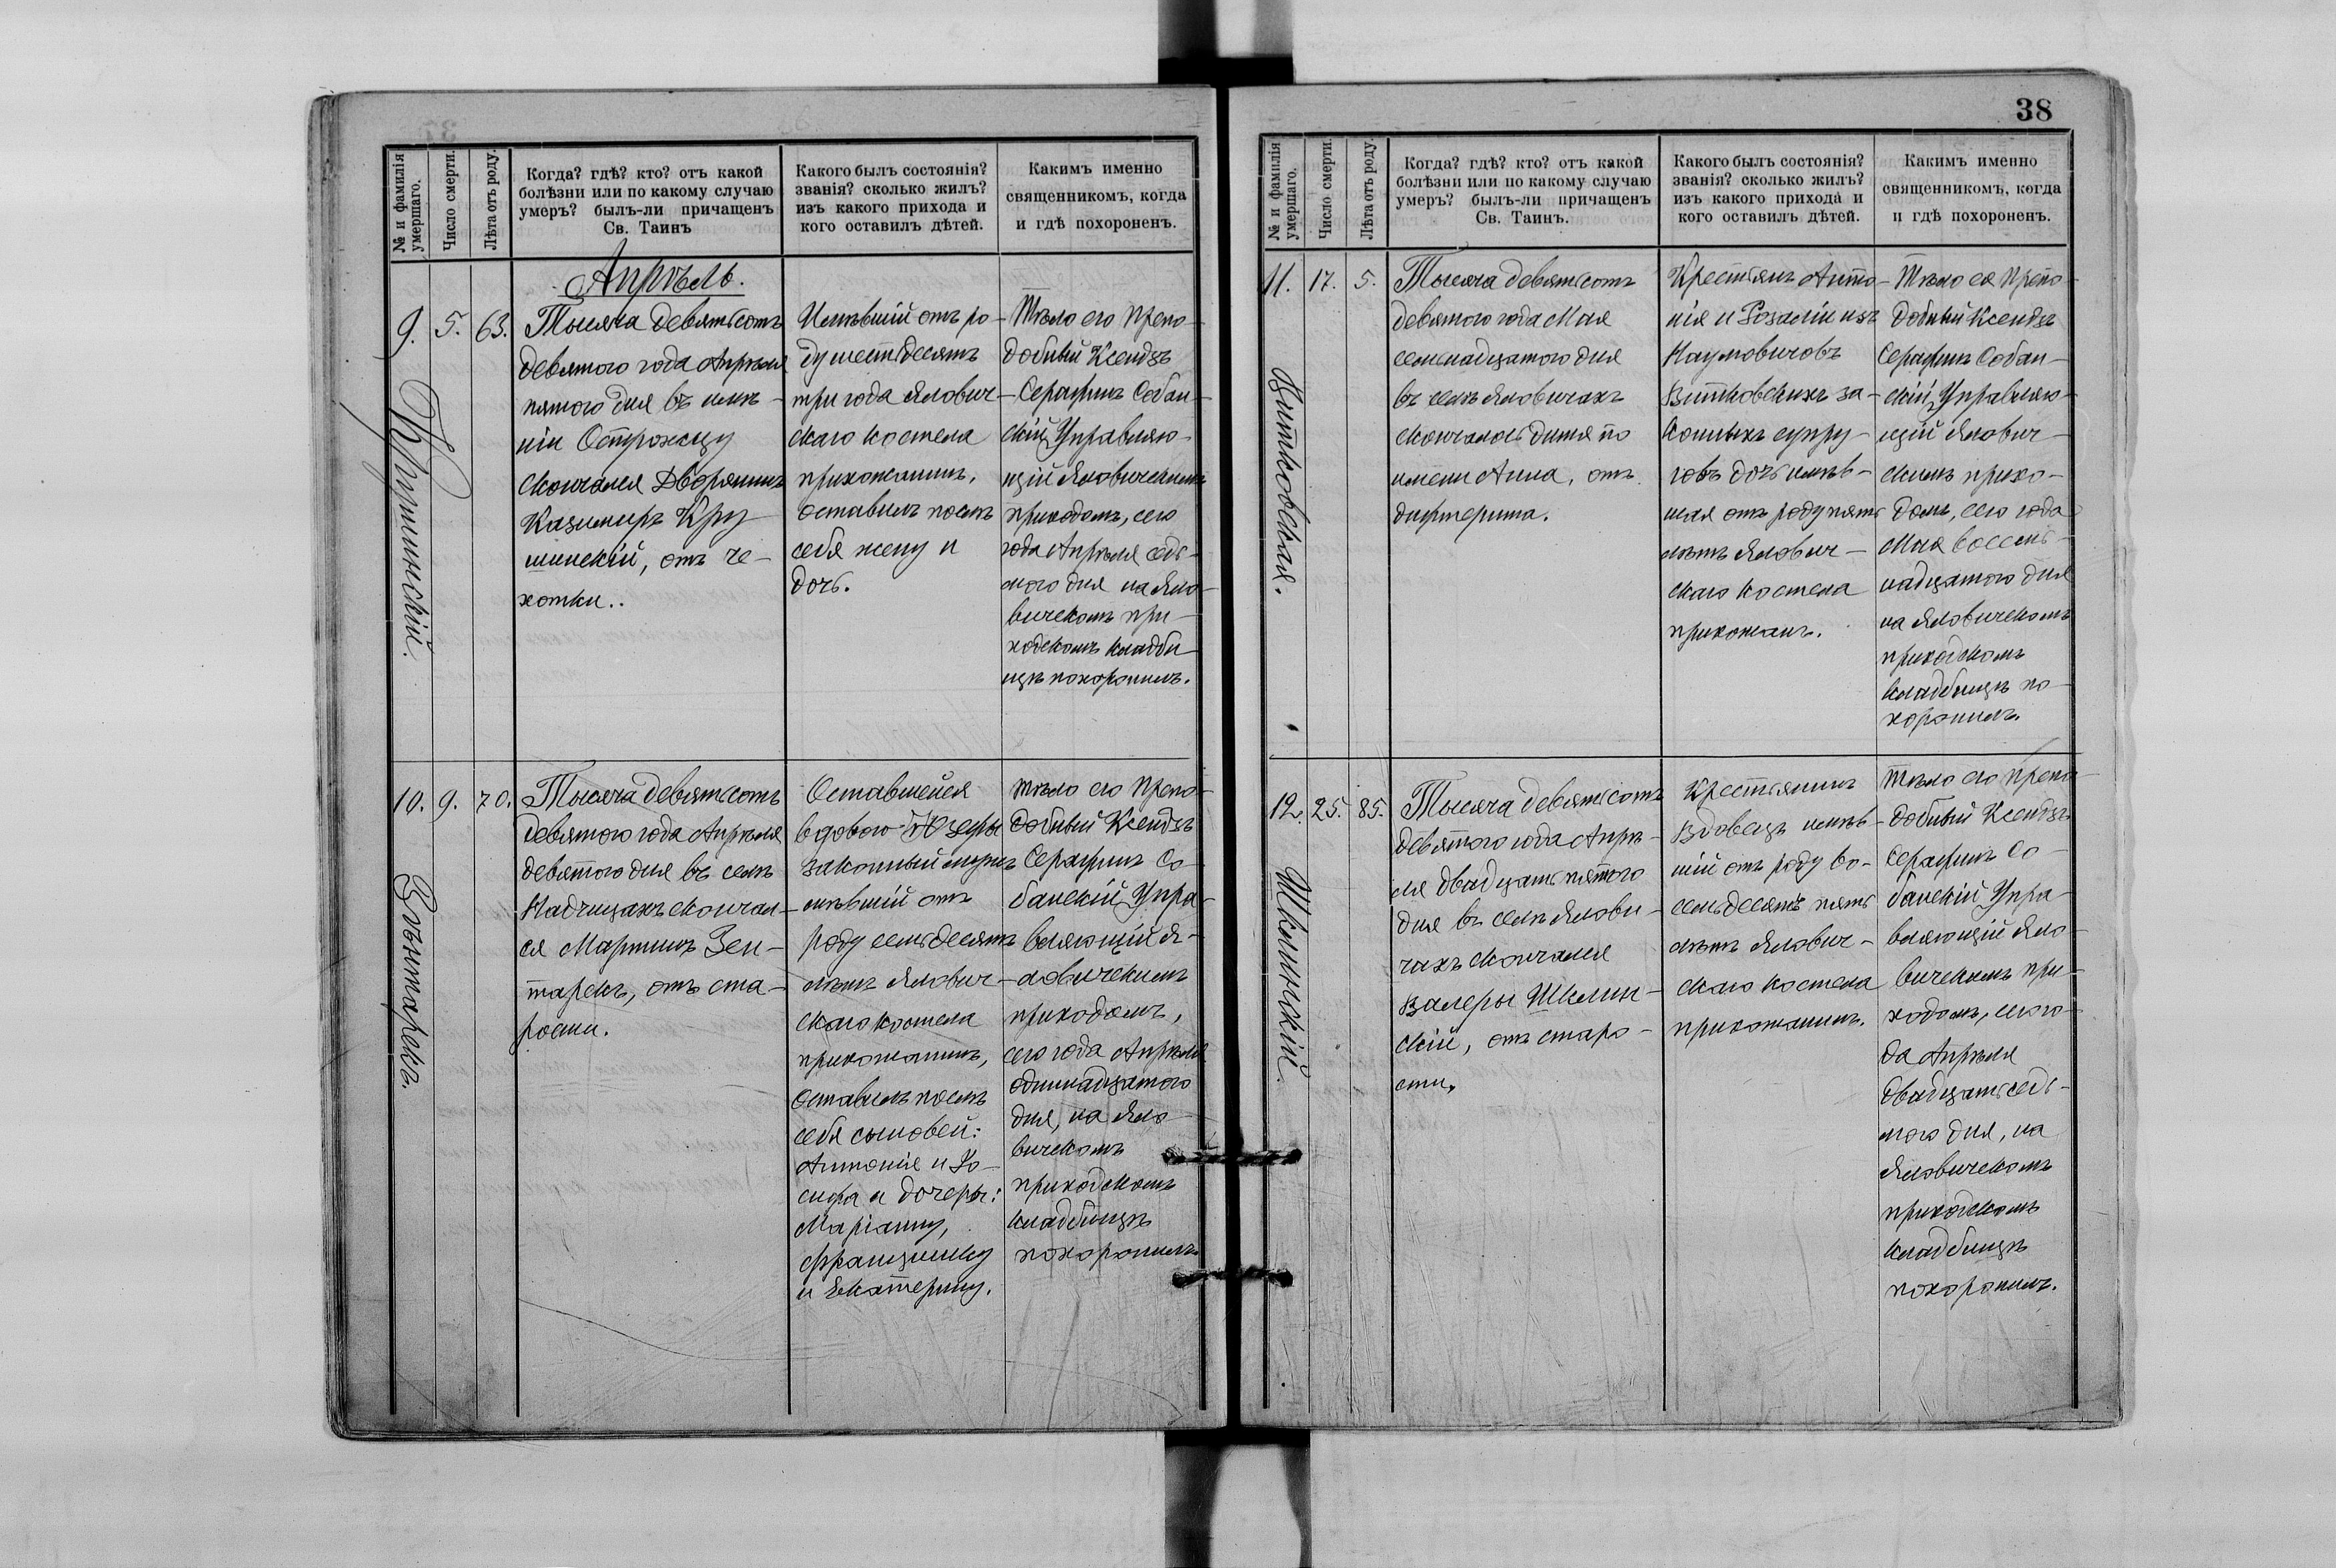 № и фамилія умершаго.
Число смерти.
Лѣта отъ роду.
Когда? гдѣ? кто? отъ какой
болѣзни или по какому случаю
умеръ? былъ-ли причащенъ
Св. Таинъ
Какого былъ состоянія?
званія? сколько жилъ?
изъ какого прихода и
кого оставилъ дѣтей.
Какимъ именно
священникомъ, когда
и гдѣ похороненъ.
Апрѣль.
9.
Крушинскій.
5.
63.
Тысяча девятьсотъ
девятого года Апрѣля
пятого дня въ имѣ-
ніи Острожцу
скончался Дворянинъ
Казимиръ Кру
шинскій, отъ че-
хотки..
Имѣвшій отъ ро-
ду шестьдесятъ
три года Ялович-
скаго костела
прихожанинъ,
оставилъ послѣ
себя жену и
дочь.
Тѣло его Препо-
добный Ксендзъ
Серафимъ Собан-
скій, Управляю-
щій Яловичскимъ
приходомъ, сего
года Апрѣля седь-
мого дня на Яло-
вичскомъ при-
ходскомъ кладби-
щѣ похоронилъ.
10.
9.
70.
Тысяча девятьсотъ
девятого года Апрѣля
девятого дня въ селѣ
Надчицахъ скончал-
ся Мартинъ Зен-
тарскъ, отъ ста-
рости.
Оставшейся
вдовою Юзефы
законный мужъ
имѣвшій отъ
роду семьдесятъ
лѣтъ Ялович-
скаго костела
прихожанинъ,
оставилъ послѣ
себя сыновей:
Антонія и Іо-
сифа и дочеры:
Маріанну,
Францишку
и Екатерину.
Тѣло его Препо-
добный Ксендзъ
Серафимъ Со-
банскій, Упра-
вляющій Я-
ловичскимъ
приходомъ,
сего года Апрѣля
одинадцатого
дня, на Яло-
вичскомъ
приходскомъ
кладбищѣ
похоронилъ
38
№ и фамилія умершаго.
Число смерти.
Лѣта отъ роду.
Когда? гдѣ? кто? отъ какой
болѣзни или по какому случаю
умеръ? былъ-ли причащенъ
Св. Таинъ.
Какого былъ состоянія?
званія? сколько жилъ?
изъ какого прихода и
кого оставилъ дѣтей.
Какимъ именно
священникомъ, когда
и гдѣ похороненъ.
11.
Витковская.
17.
5.
Тысяча девятьсотъ
девятого года Мая
семнадцатого дня
въ селѣ Яловичахъ
скончалось дитя по
имени Анна, отъ
дифтерита.
Крестьянъ Анто-
нія и Розаліи изъ
Наумовичовъ
Витковскихъ за-
конныхъ супру-
говъ дочь имѣв-
шая отъ роду пять
лѣтъ Ялович-
скаго костела
прихожанъ.
Тѣло ея Препо-
добный Ксендзъ
Серафимъ Собан-
скій, Управляю-
щій Ялович-
скимъ прихо-
домъ, сего года
Мая восем-
надцатого дня
на Яловичскомъ
приходскомъ
кладбищѣ по-
хоронилъ.
12.
Шклинскій.
25.
85.
Тысяча девятьсотъ
девятого года Апрѣ-
ля двадцать пятого
дня въ селѣ Ялови-
чахъ скончался
Валеры Шклин-
скій, отъ старо-
сти.
Крестьянинъ
Вдовецъ имѣв-
шій отъ роду во-
семьдесятъ пять
лѣтъ Ялович-
скаго костела
прихожанинъ.
Тѣло его Препо-
добный Ксендзъ
Серафимъ Со-
банскій Упра-
вляющій Яло-
вичскимъ при-
ходомъ, сего го-
да Апрѣля
двадцать седь-
мого дня, на
Яловичскомъ
приходскомъ
кладбищѣ
похоронилъ.